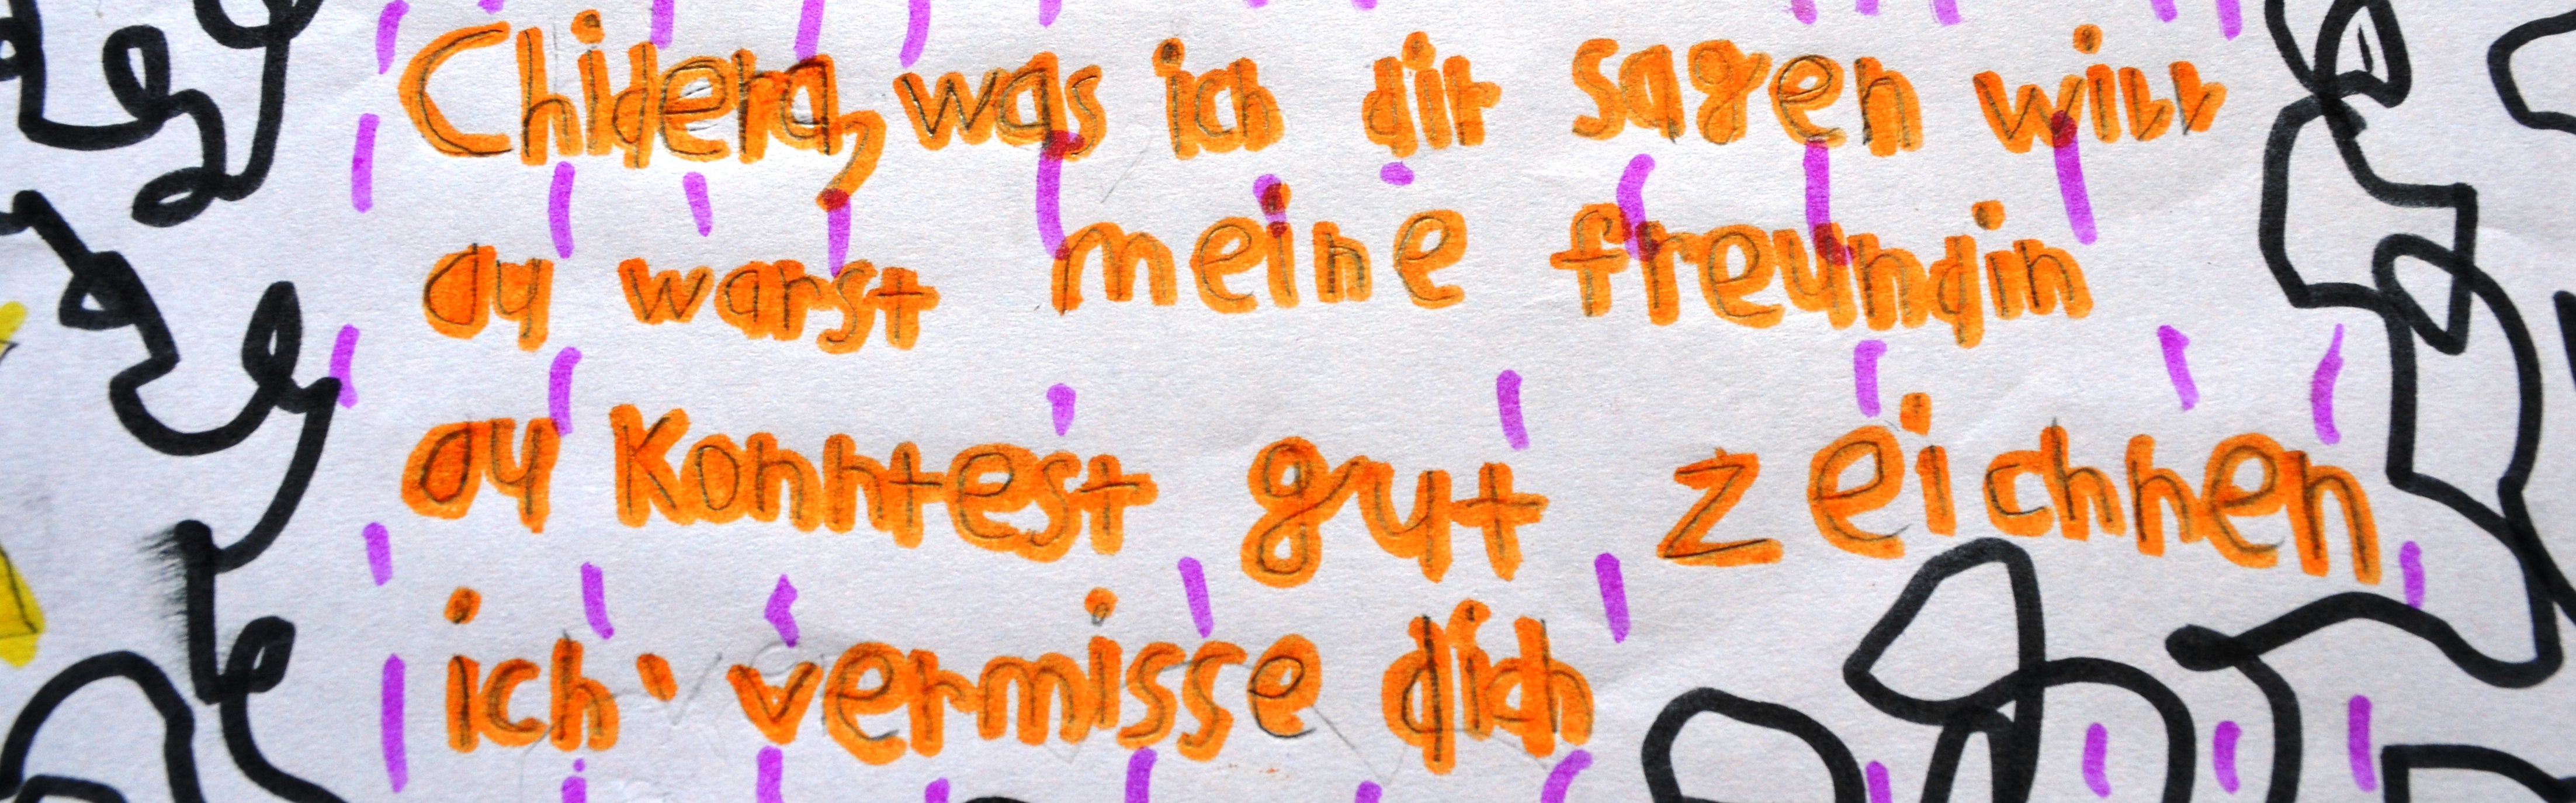 Chidera, was ich dir sagen will
du warst meine freundin
du Konntest gut zeichnen
ich vermisse dich